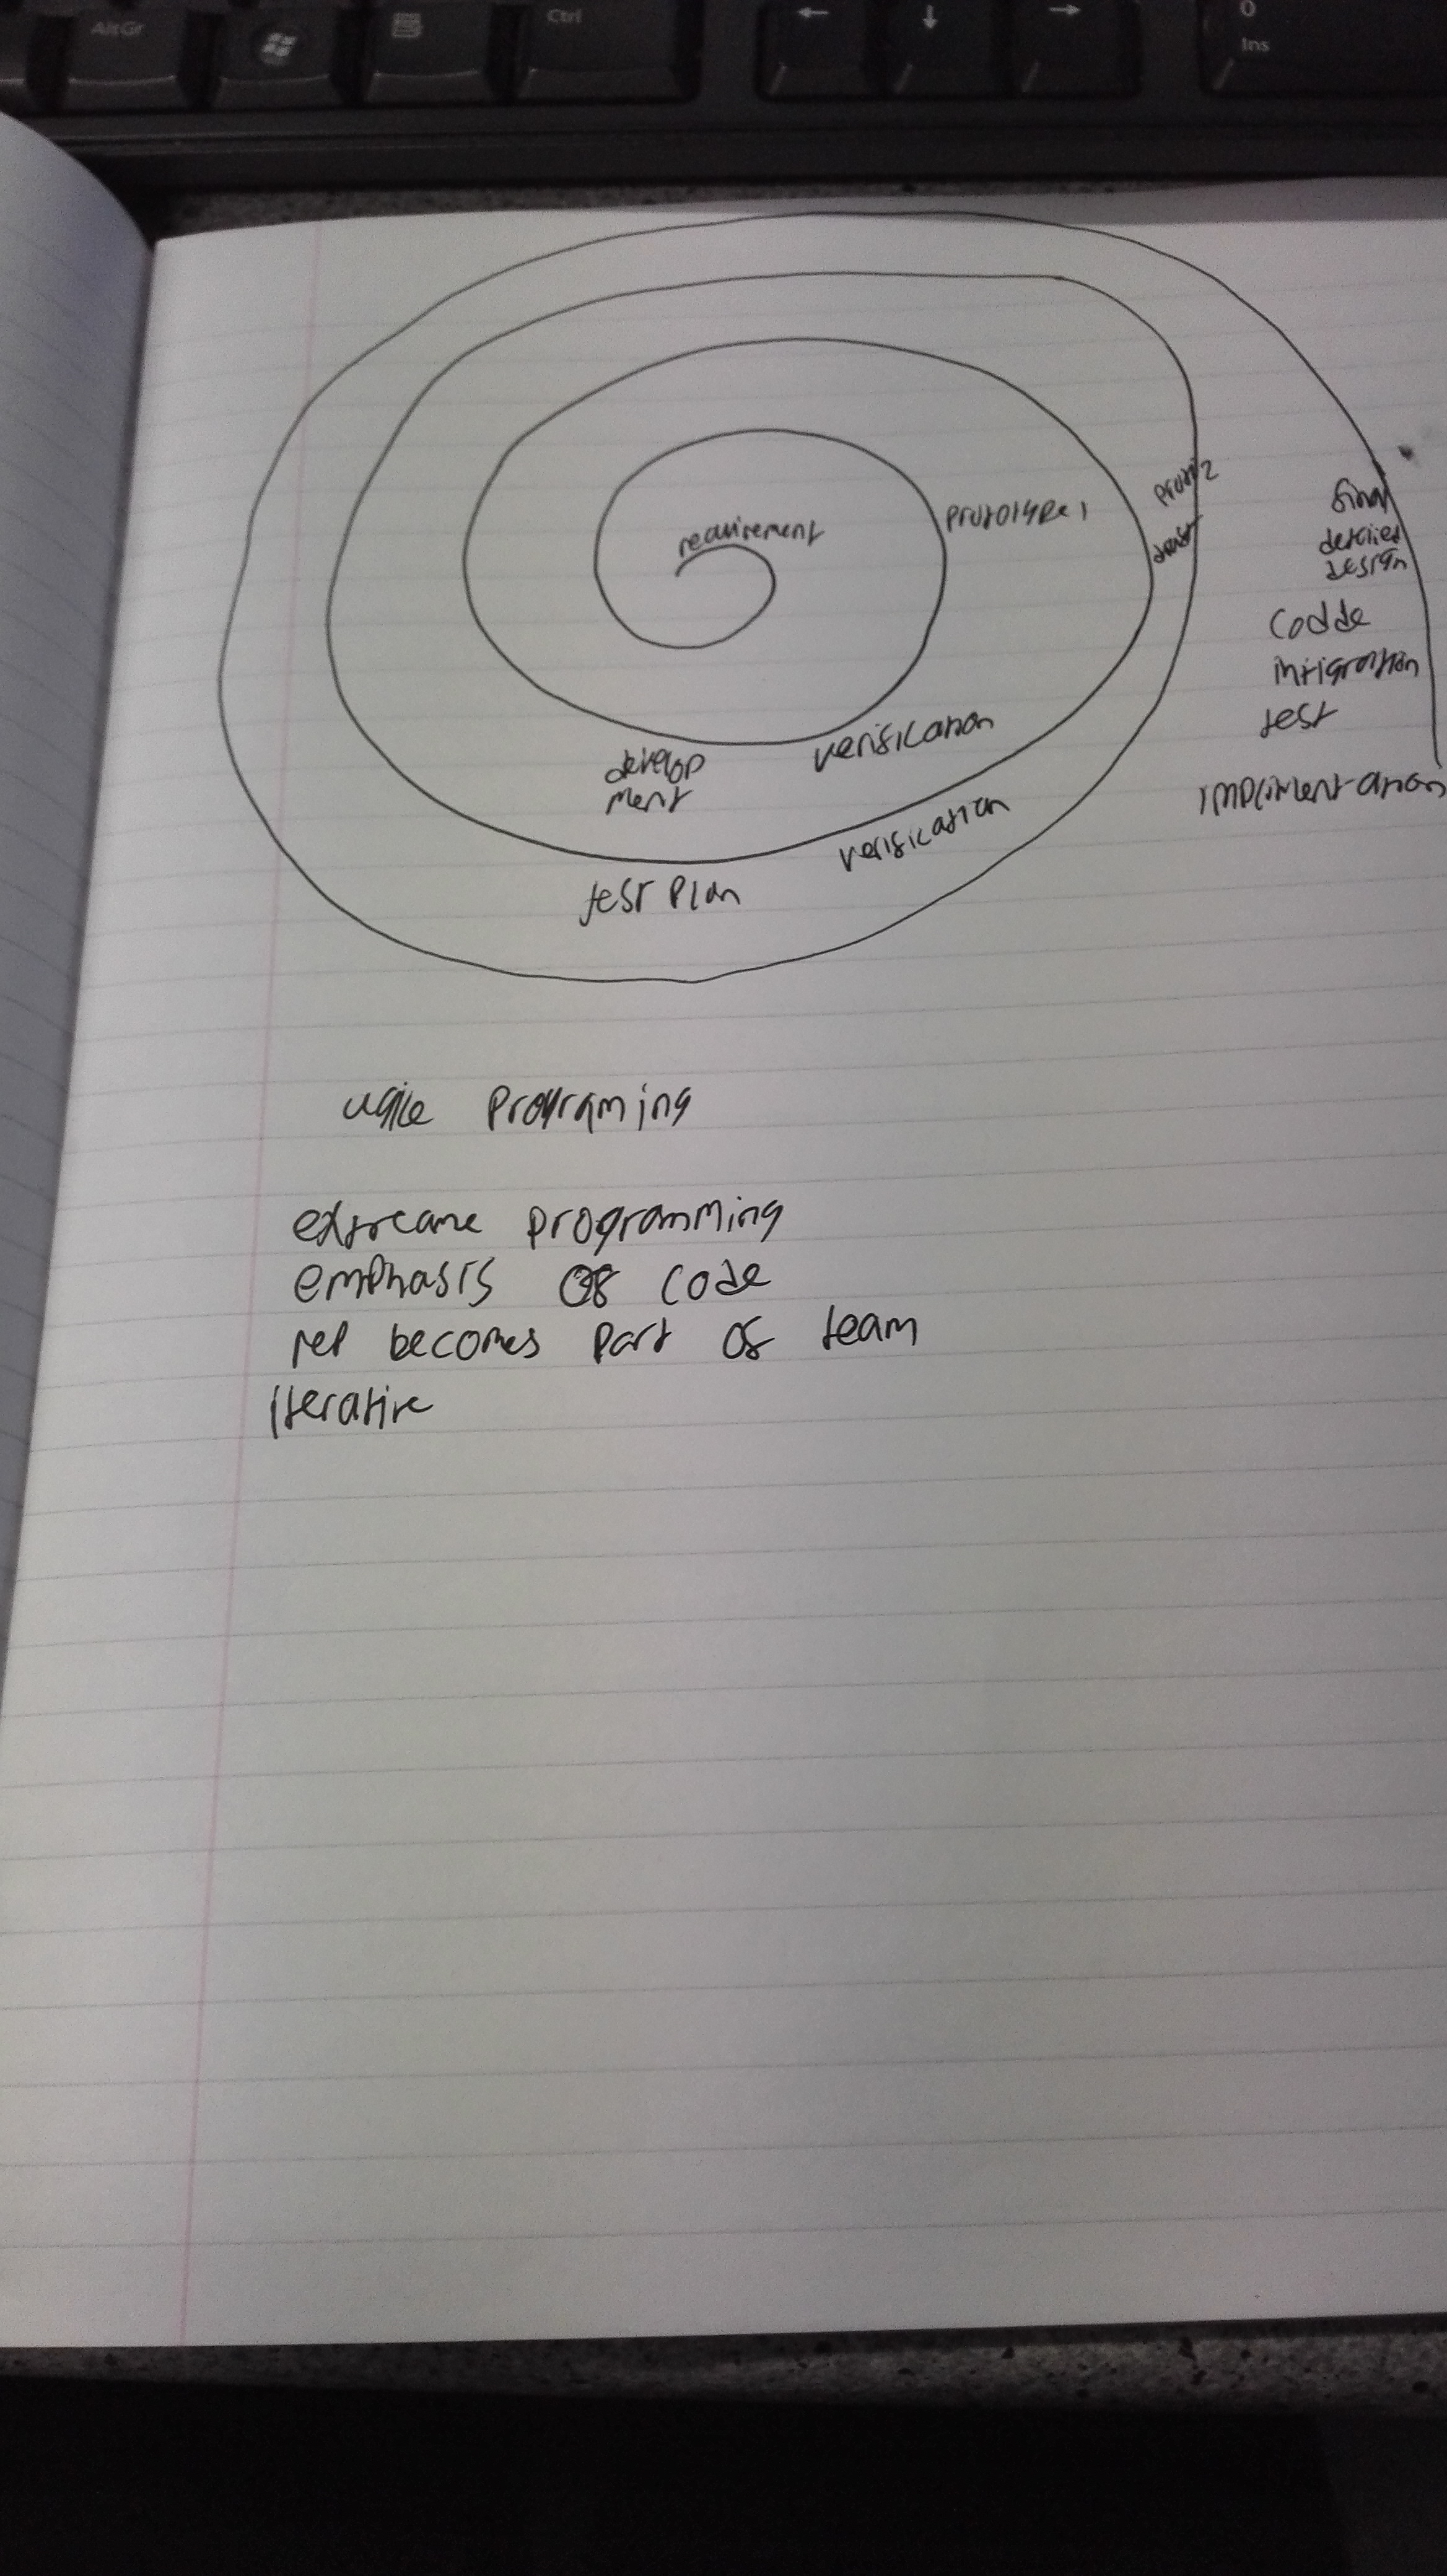 AltGr
Ctrl
←
↓
→
0
Ins
requirement
prototype 1
prot 2
final
detailed
design
codde
intigration
test
implimentation
develop
ment
verification
verification
test plan
agile programing
extreame programming
emphasis of code
rep becomes part of team
iterative